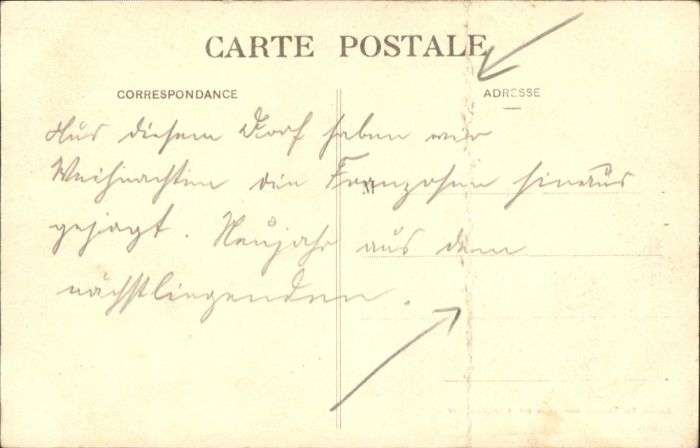 CARTE POSTALE
CORRESPONDANCE
ADRESSE
Aus diesem Dorf haben wir
Weihnachten die Franzosen hinaus
gejagt. Neujahr aus dem
nächstliegenden.